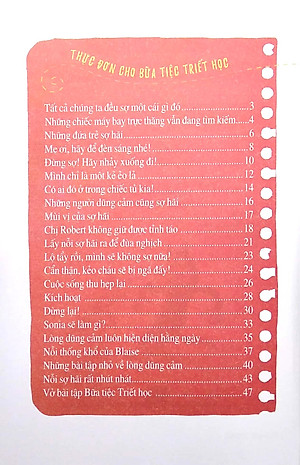 THỰC ĐƠN CHO BỮA TIỆC TRIẾT HỌC
Tất cả chúng ta đều sợ một cái gì đó ..................... 3
Những chiếc máy bay trực thăng vẫn đang tìm kiếm .... 4
Những đứa trẻ sợ hãi ..................... 6
Mẹ ơi, hãy để đèn sáng nhé! ..................... 8
Đừng sợ! Hãy nhảy xuống đi! ..................... 10
Mình chỉ là một kẻ ẻo lả ..................... 12
Có ai đó ở trong chiếc tủ kia! ..................... 14
Những người dũng cảm cũng sợ hãi ..................... 16
Mùi vị của sợ hãi ..................... 17
Chị Robert không giữ được tỉnh táo ..................... 18
Lấy nỗi sợ hãi ra để đùa nghịch ..................... 21
Lộ tẩy rồi, mình sẽ không sợ nữa! ..................... 23
Cẩn thận, kẻo cháu sẽ bị ngã đấy! ..................... 24
Cuộc sống thu hẹp lại ..................... 26
Kích hoạt ..................... 28
Dừng lại! ..................... 30
Sonia sẽ làm gì? ..................... 33
Lòng dũng cảm luôn hiện diện hằng ngày ..................... 35
Nỗi thống khổ của Blaise ..................... 37
Những bài tập nhỏ về lòng dũng cảm ..................... 40
Nỗi sợ hãi rất nhút nhát ..................... 43
Vở bài tập Bữa tiệc Triết học ..................... 47